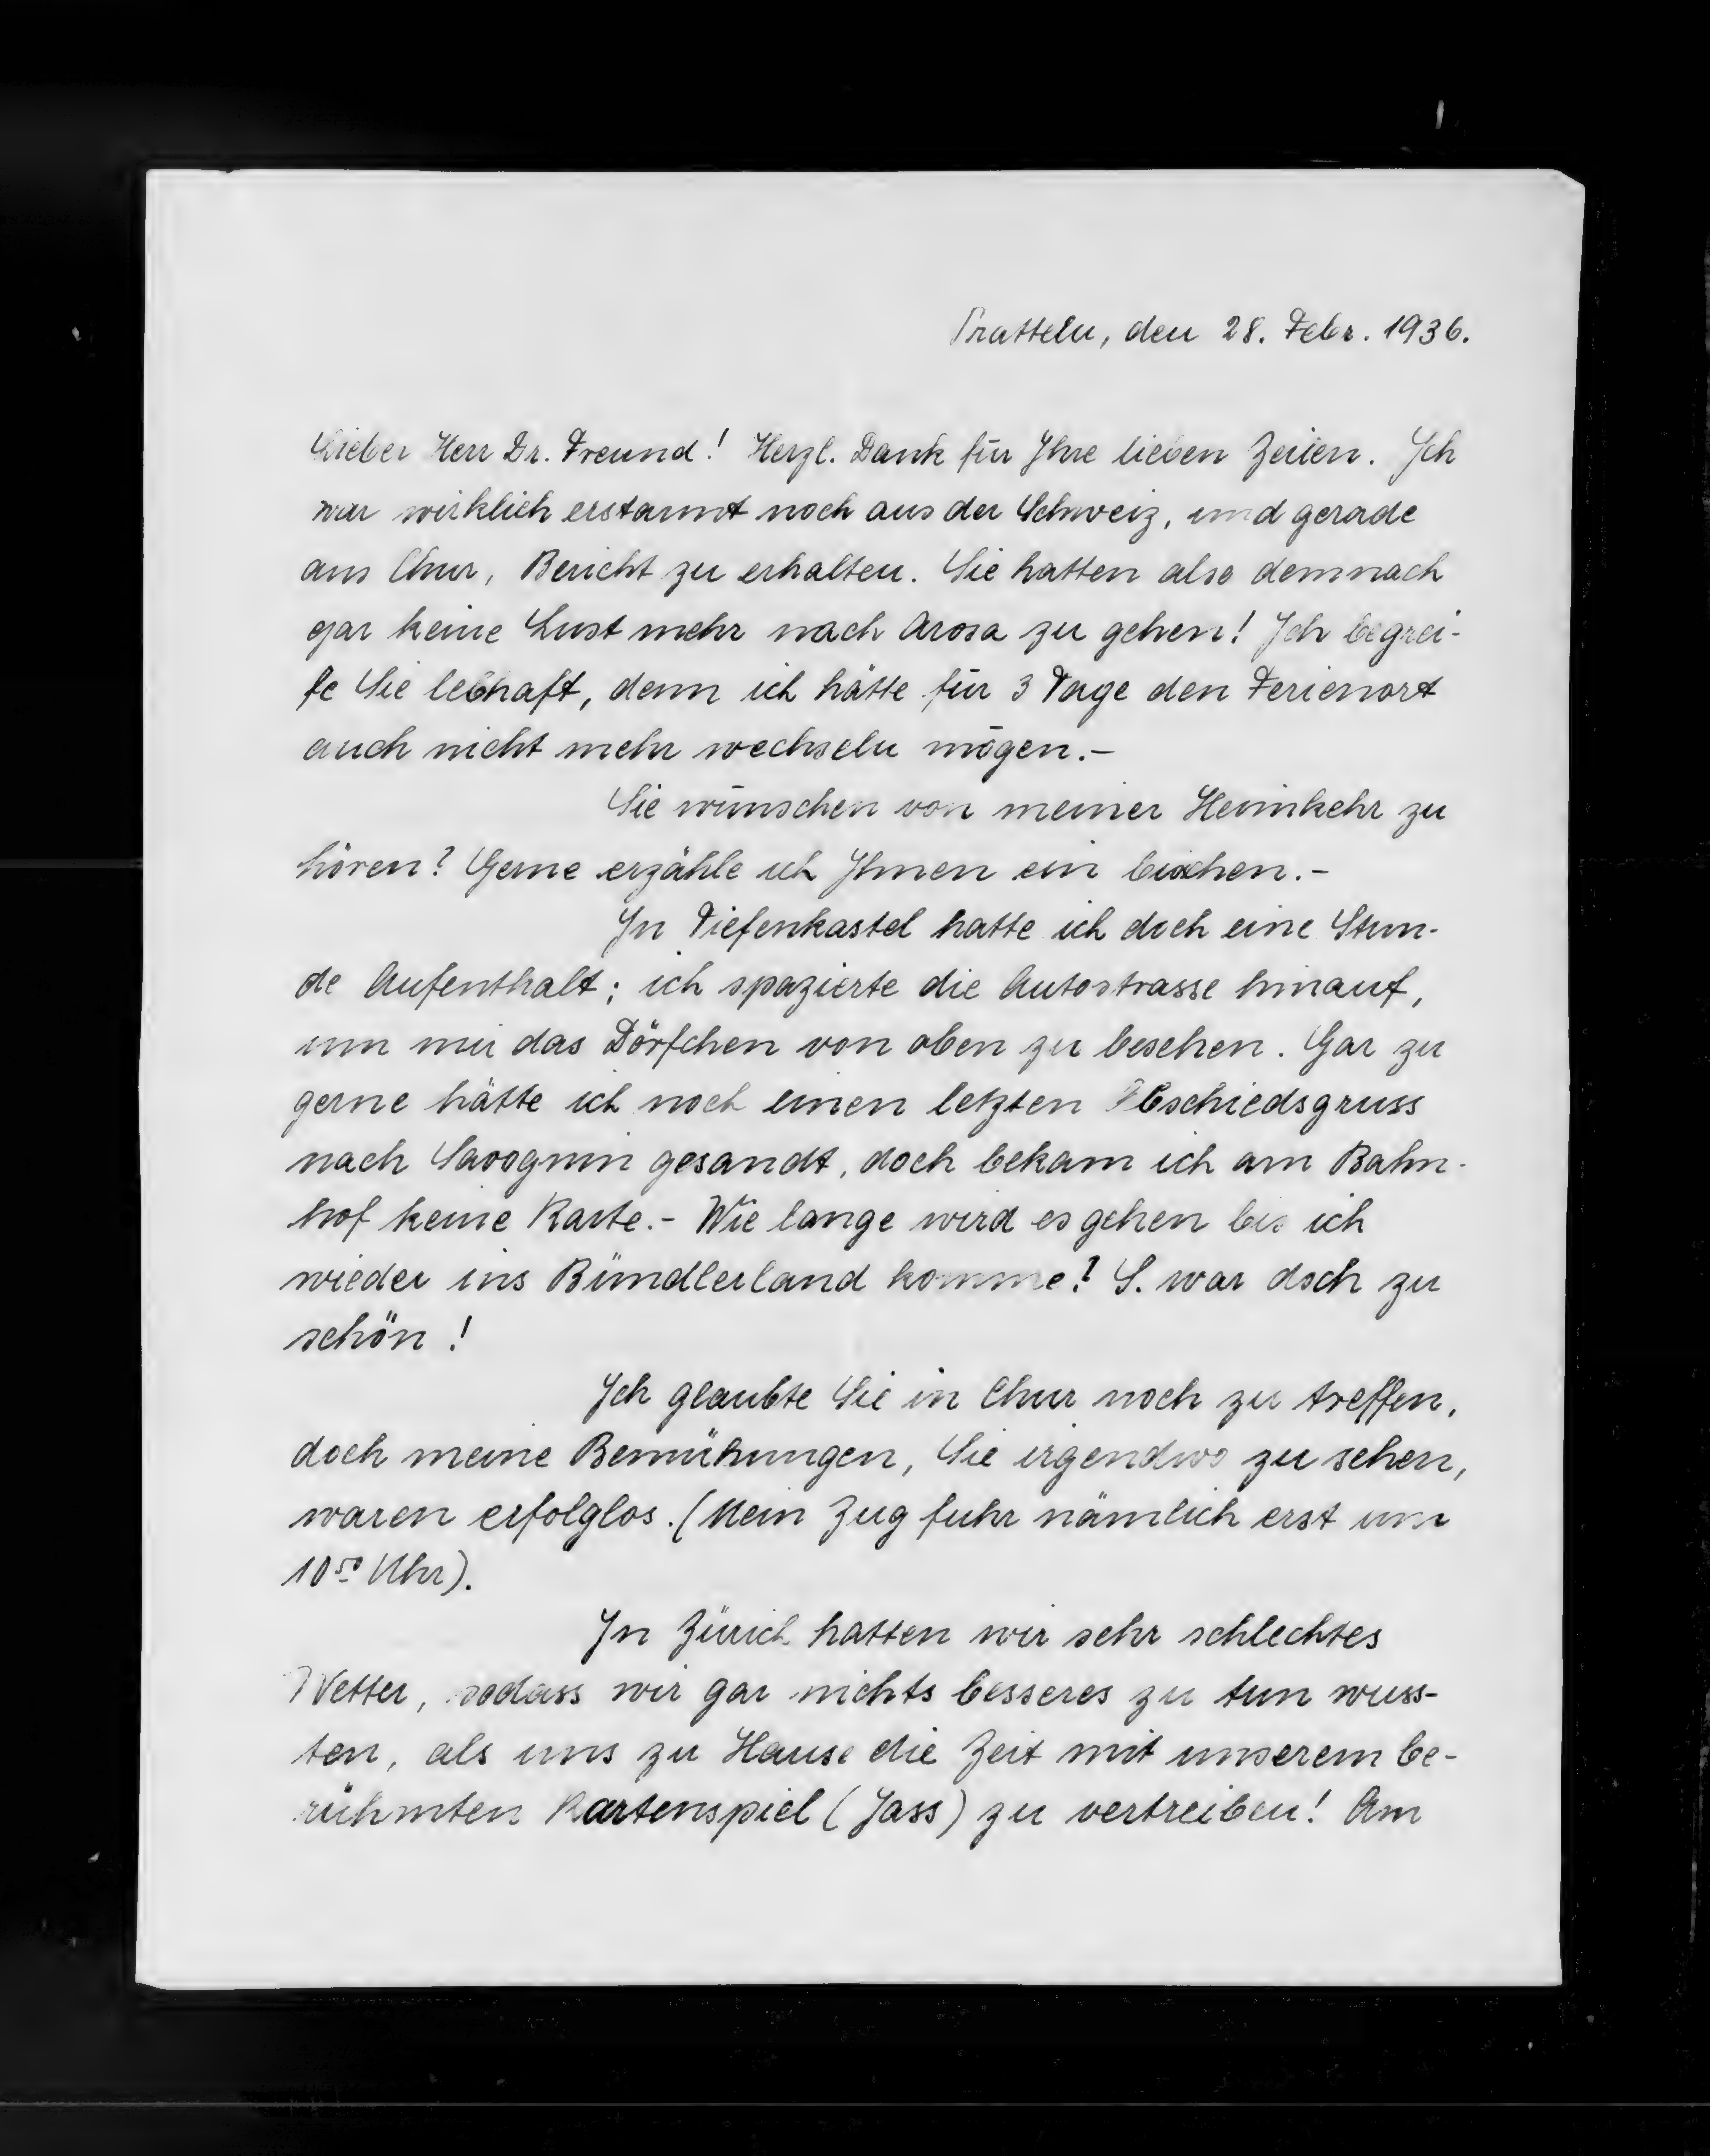 Pratteln, den 28. Febr. 1936.
Lieber Herr Dr. Freund! Herzl. Dank für Ihre lieben Zeilen. Ich
war wirklich erstaunt noch aus der Schweiz, und gerade
aus Chur, Bericht zu erhalten. Sie hatten also demnach
gar keine Lust mehr nach Arosa zu gehen! Ich begrei-
fe Sie lebhaft, denn ich hätte für 3 Tage den Ferienort
auch nicht mehr wechseln mögen.-
Sie wünschen von meiner Heimkehr zu
hören? Gerne erzähle ich Ihnen ein bischen.-
In Tiefenkastel hatte ich doch eine Stun-
de Aufenthalt; ich spazierte die Autostrasse hinauf,
um mir das Dörfchen von oben zu besehen. Gar zu
gerne hätte ich noch einen letzten Abschiedsgruss
nach Savognin gesandt, doch bekam ich am Bahn-
hof keine Karte.- Wie lange wird es gehen bis ich
wieder ins Bündlerland komme? S. war doch zu
schön!
Ich glaubte Sie in Chur noch zu treffen,
doch meine Bemühungen, Sie irgendwo zu sehen,
waren erfolglos. (Mein Zug fuhr nämlich erst um
10⁵⁰ Uhr).
In Zürich hatten wir sehr schlechtes
Wetter, sodass wir gar nichts besseres zu tun wuss-
ten, als uns zu Hause die Zeit mit unserem be-
rühmten Kartenspiel (Jass) zu vertreiben! Am